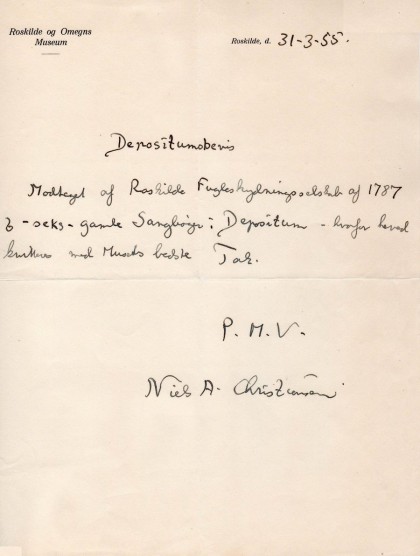 Roskilde og Omegns
Museum
Roskilde, d. 31-3-55.
Depositumsbevis
Modtaget af Roskilde Fugleskydningsselskab af 1787
6 - seks - gamle Sangbøger i Depositum - hvorfor herved
kvitteres med Musets bedste Tak.
P. M. V.
Niels A. Christiansen